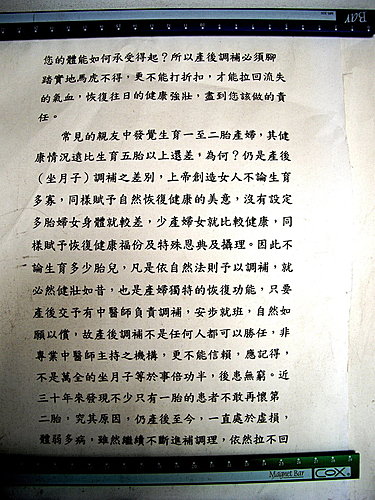 您的體能如何承受得起？所以產後調補必須腳
踏實地馬虎不得，更不能打折扣，才能拉回流失
的氣血，恢復往日的健康強壯，盡到您該做的責
任。
常見的親友中發覺生育一至二胎產婦，其健
康情況遠比生育五胎以上還差，為何？仍是產後
（坐月子）調補之差別，上帝創造女人不論生育
多寡，同樣賦予自然恢復健康的美意，沒有設定
多胎婦女身體就較差，少產婦女就比較健康，同
樣賦予恢復健康福份及特殊恩典及攝理。因此不
論生育多少胎兒，凡是依自然法則予以調補，就
必然健壯如昔，也是產婦獨特的恢復功能，只要
產後交予有中醫師負責調補，安步就班，自然如
願以償，故產後調補不是任何人都可以勝任，非
專業中醫師主持之機構，更不能信賴，應記得，
不是萬全的坐月子等於事倍功半，後患無窮。近
三十年來發現不少只有一胎的患者不敢再懷第
二胎，究其原因，仍產後至今，一直處於虛損，
體弱多病，雖然繼續不斷進補調理，依然拉不回
Magnet Bar COX